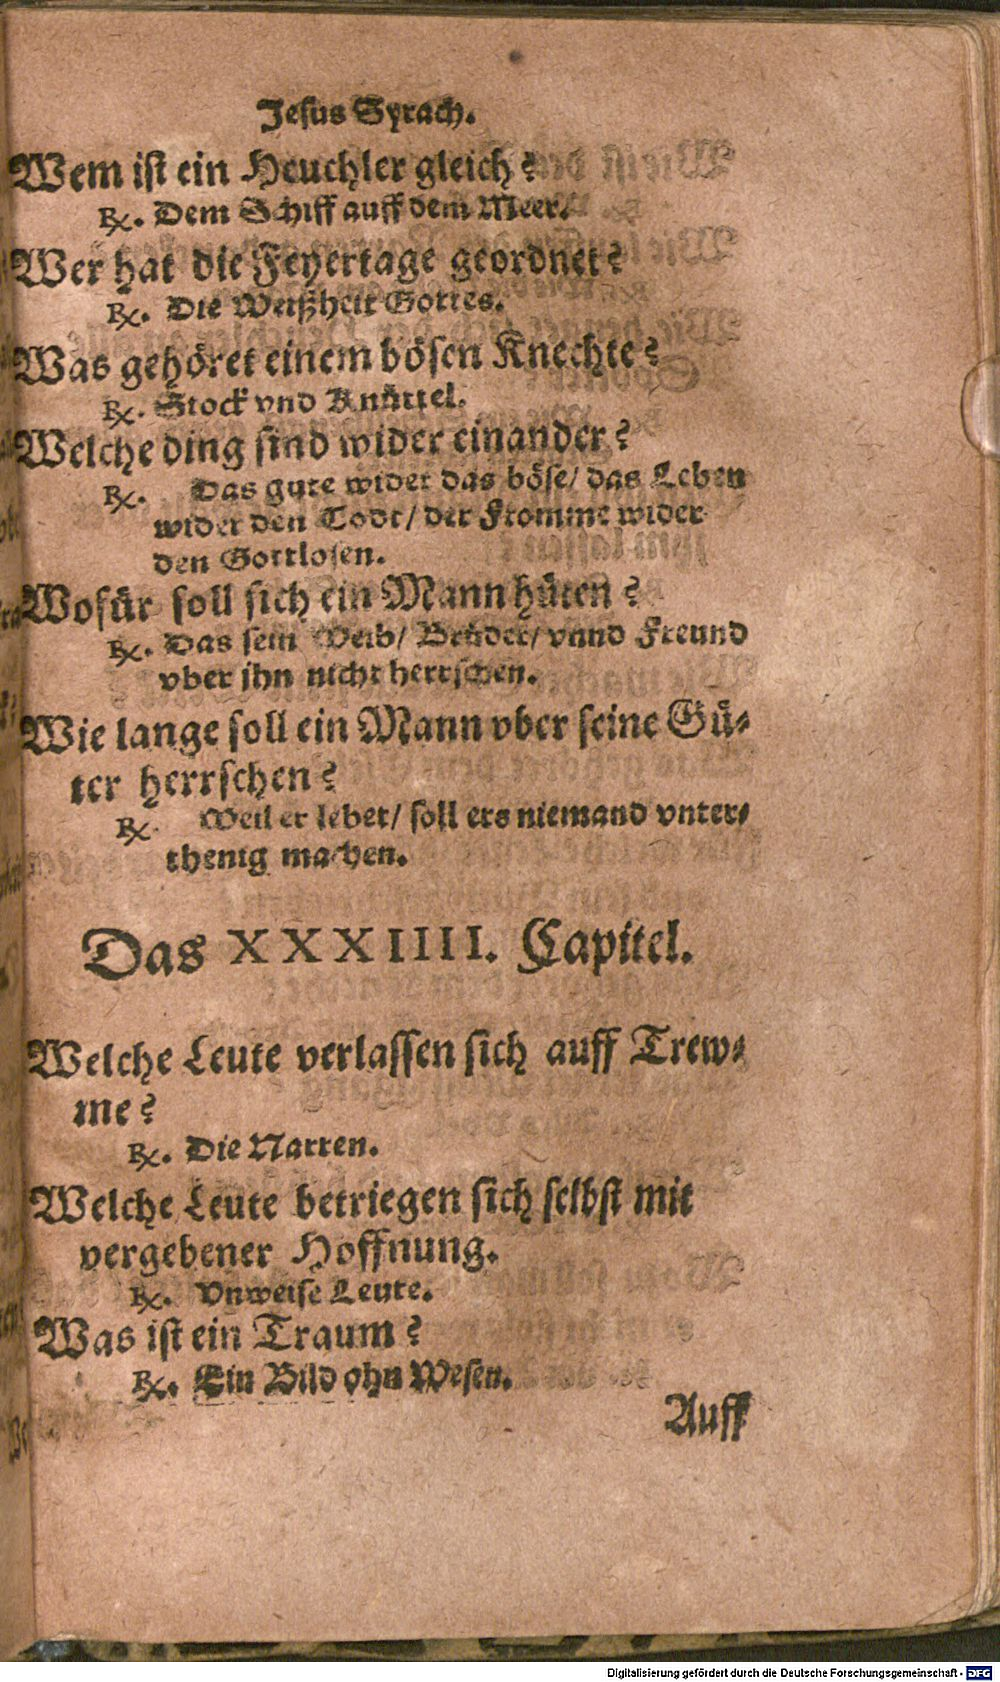 Jesus Syrach.
Wem ist ein Heuchler gleich?
℞. Dem Schiff auff dem Meer.
Wer hat die Feyertage geordnet?
℞. Die Weißheit Gottes.
Was gehöret einem bösen Knechte?
℞. Stock vnd Knüttel.
Welche ding sind wider einander?
℞. Das gute wider das böse/ das Leben
wider den Todt/ der Fromme wider
den Gottlosen.
Wofür soll sich ein Mann hüten?
℞. Das sein Weib/ Brüder/ vnnd Freund
vber ihn nicht herrschen.
Wie lange soll ein Mann vber seine Gü-
ter herrschen?
℞. Weil er lebet/ soll ers niemand vnter-
thenig machen.
Das XXXIIII. Capitel.
Welche Leute verlassen sich auff Trew-
me?
℞. Die Narren.
Welche Leute betriegen sich selbst mit
vergebener Hoffnung.
℞. Vnweise Leute.
Was ist ein Traum?
℞. Ein Bild ohn Wesen.
Auff
Digitalisierung gefördert durch die Deutsche Forschungsgemeinschaft - DFG